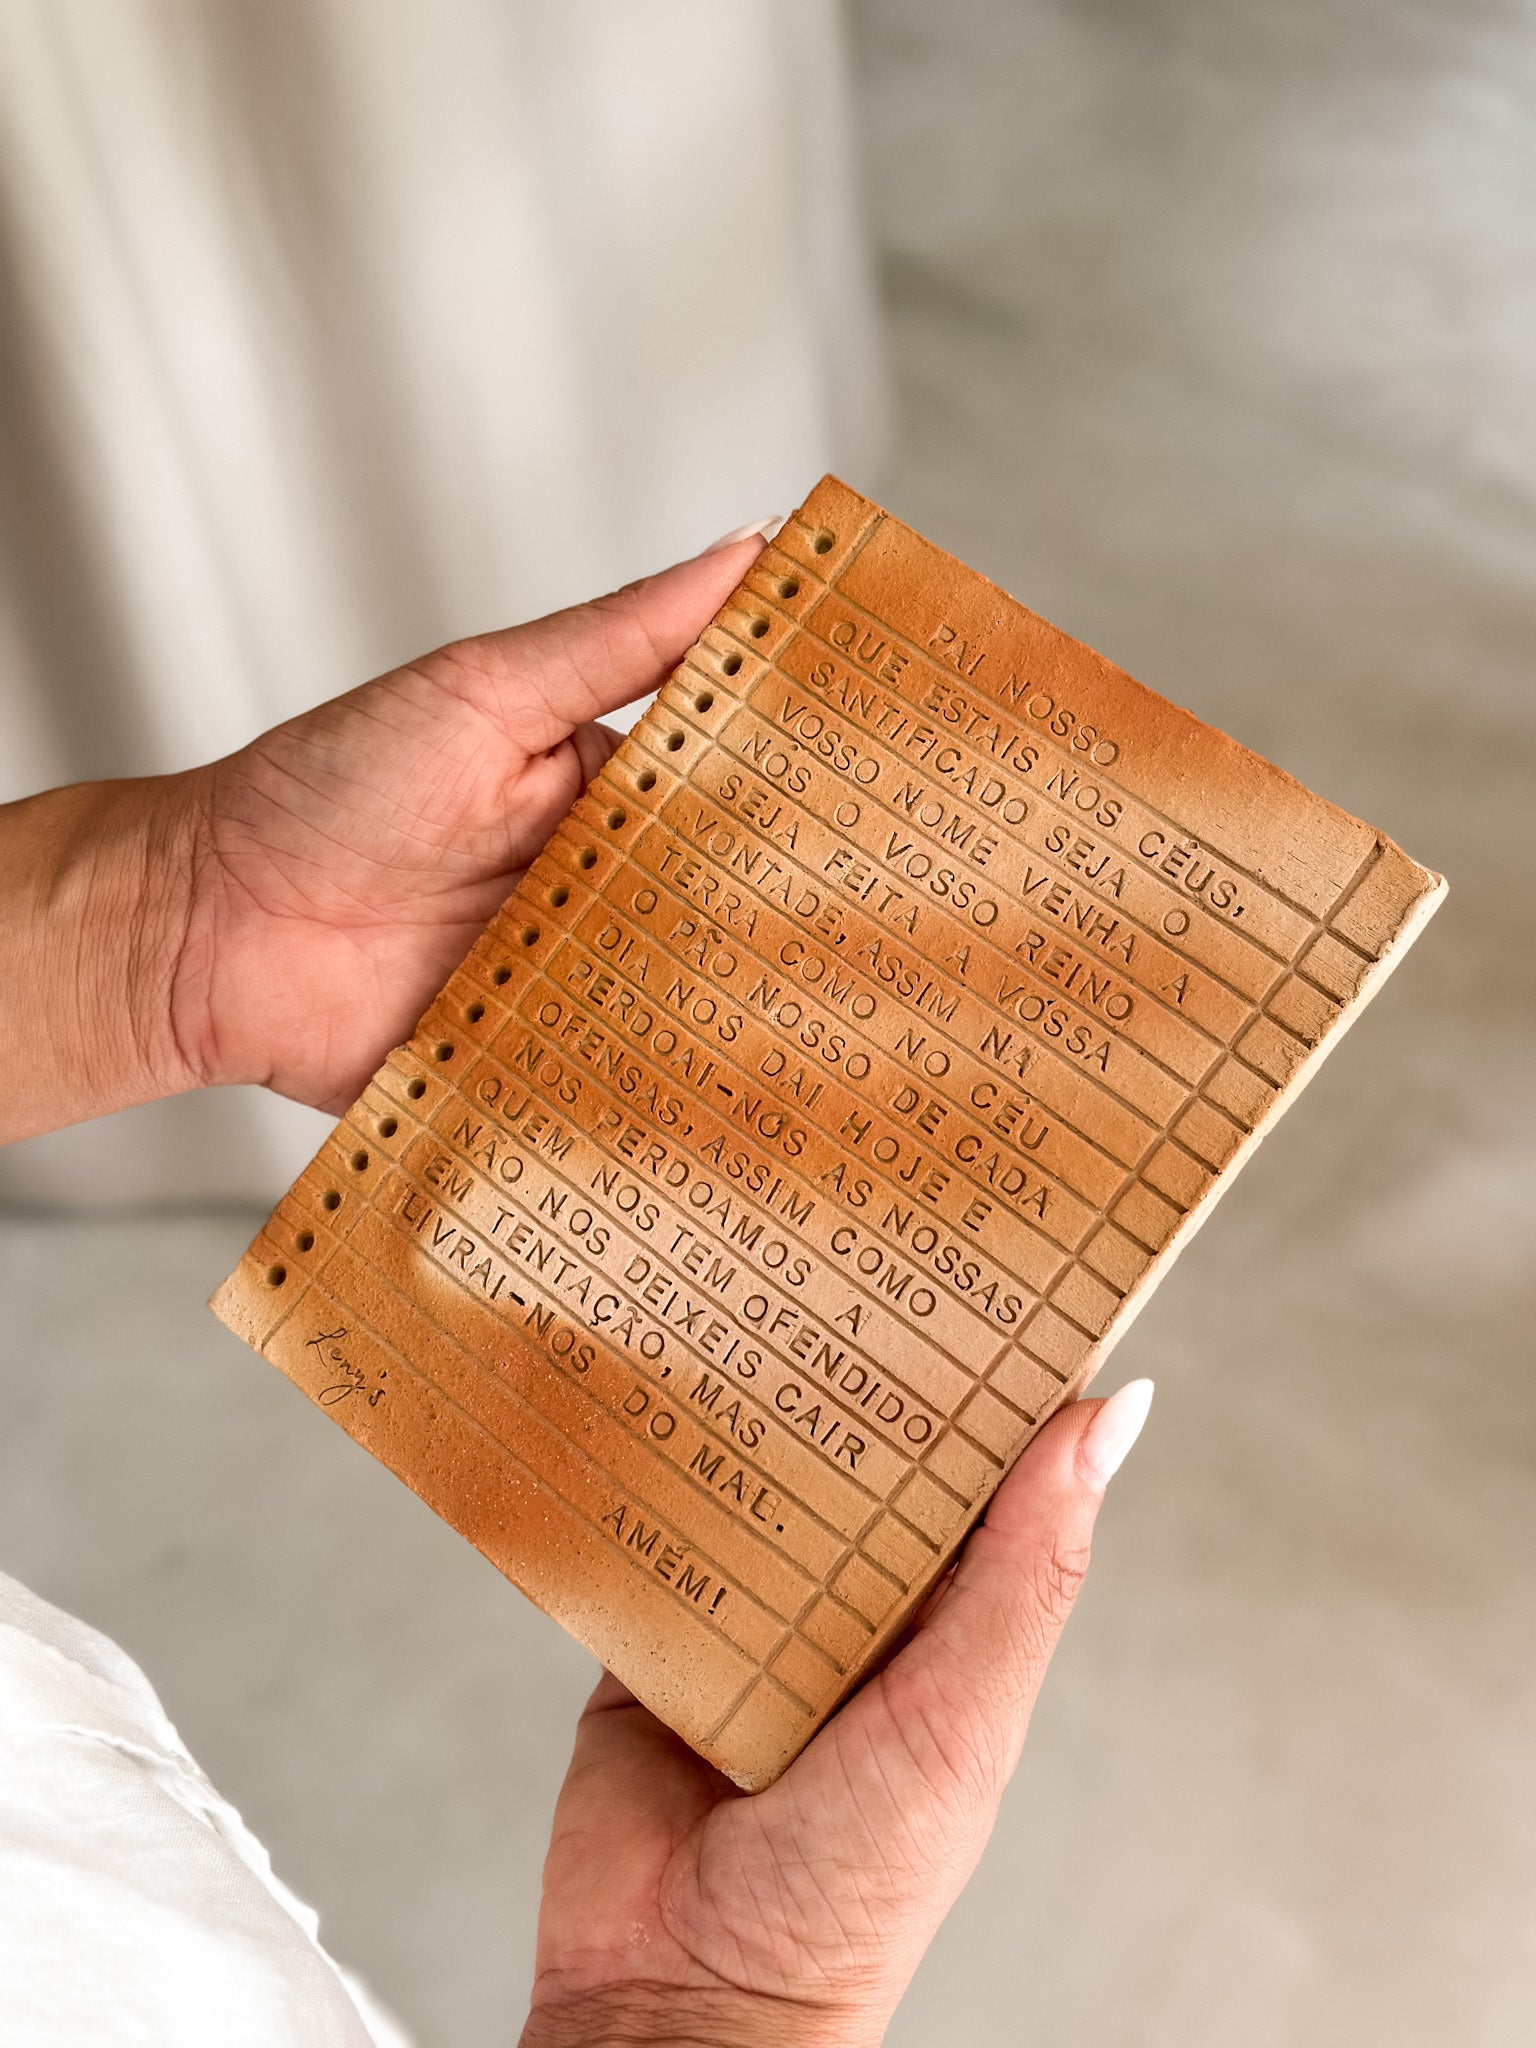 PAI NOSSO
QUE ESTAIS NOS CÉUS,
SANTIFICADO SEJA O
VOSSO NOME VENHA A
NÓS O VOSSO REINO
SEJA FEITA A VOSSA
VONTADE, ASSIM NA
TERRA COMO NO CÉU
O PÃO NOSSO DE CADA
DIA NOS DAI HOJE E
PERDOAI-NOS AS NOSSAS
OFENSAS, ASSIM COMO
NOS PERDOAMOS A
QUEM NOS TEM OFENDIDO
NÃO NOS DEIXEIS CAIR
EM TENTAÇÃO, MAS
LIVRAI-NOS DO MAL.
AMÉM!
Leny's